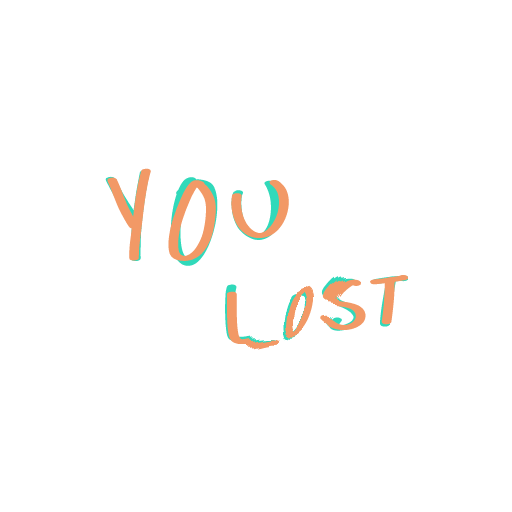 YOU
LOST